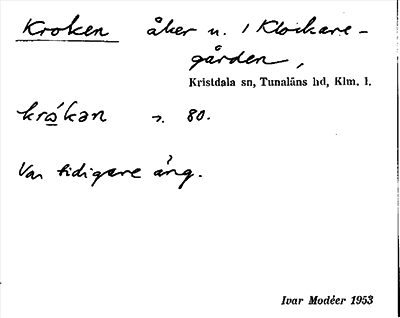 Kroken åker n. 1 Klockare-
gården,
Kristdala sn, Tunaläns hd, Klm. l.
krókan s. 80.
Var tidigare äng.
Ivar Modéer 1953